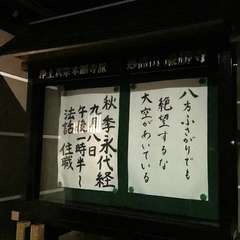 浄土真宗本願寺派
八方ふさがりでも
絶望するな
大空があいている
秋季永代経
九月八日
午後一時半〜
法話 住職